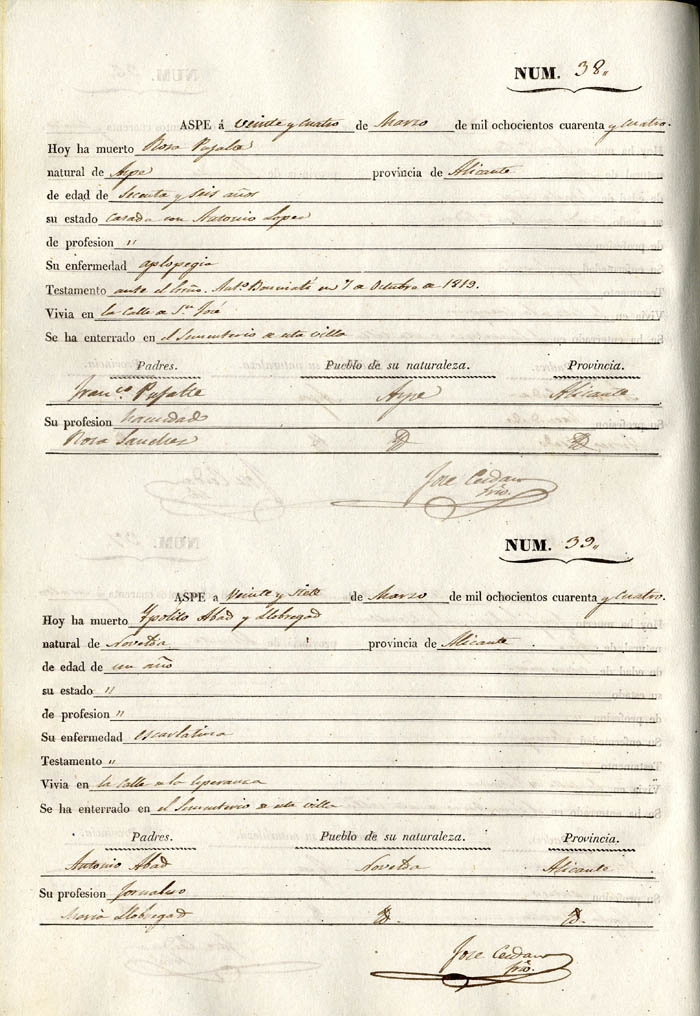 NUM. 38.,
ASPE á veinte y cuatro de Marzo de mil ochocientos cuarenta y cuatro.
Hoy ha muerto Rosa Pujalte
natural de Aspe provincia de Alicante
de edad de Secenta y seis años
su estado casada con Antonio Lopez
de profesion "
Su enfermedad aplopegia
Testamento ante el Ant.º en 7 de Octubre de 1819.
Vivia en la calle de Sn José
Se ha enterrado en el Sementerio de esta villa
Padres. Pueblo de su naturaleza. Provincia.
Franco. Pujalte Aspe Alicante
Su profesion hacendad
Rosa Sanchez
Jose Cerdan
Srio.
NUM. 39.,
ASPE a veinte y siete de Marzo de mil ochocientos cuarenta y cuatro.
Hoy ha muerto Ypolito Abad y Llobregad
natural de Novelda provincia de Alicante
de edad de un año
su estado "
de profesion "
Su enfermedad escarlatina
Testamento "
Vivia en la calle de la Esperanza
Se ha enterrado en el Sementerio de esta villa
Padres. Pueblo de su naturaleza. Provincia.
Antonio Abad Novelda Alicante
Su profesion Jornalero
Maria Llobregad
Jose Cerdan
Srio.